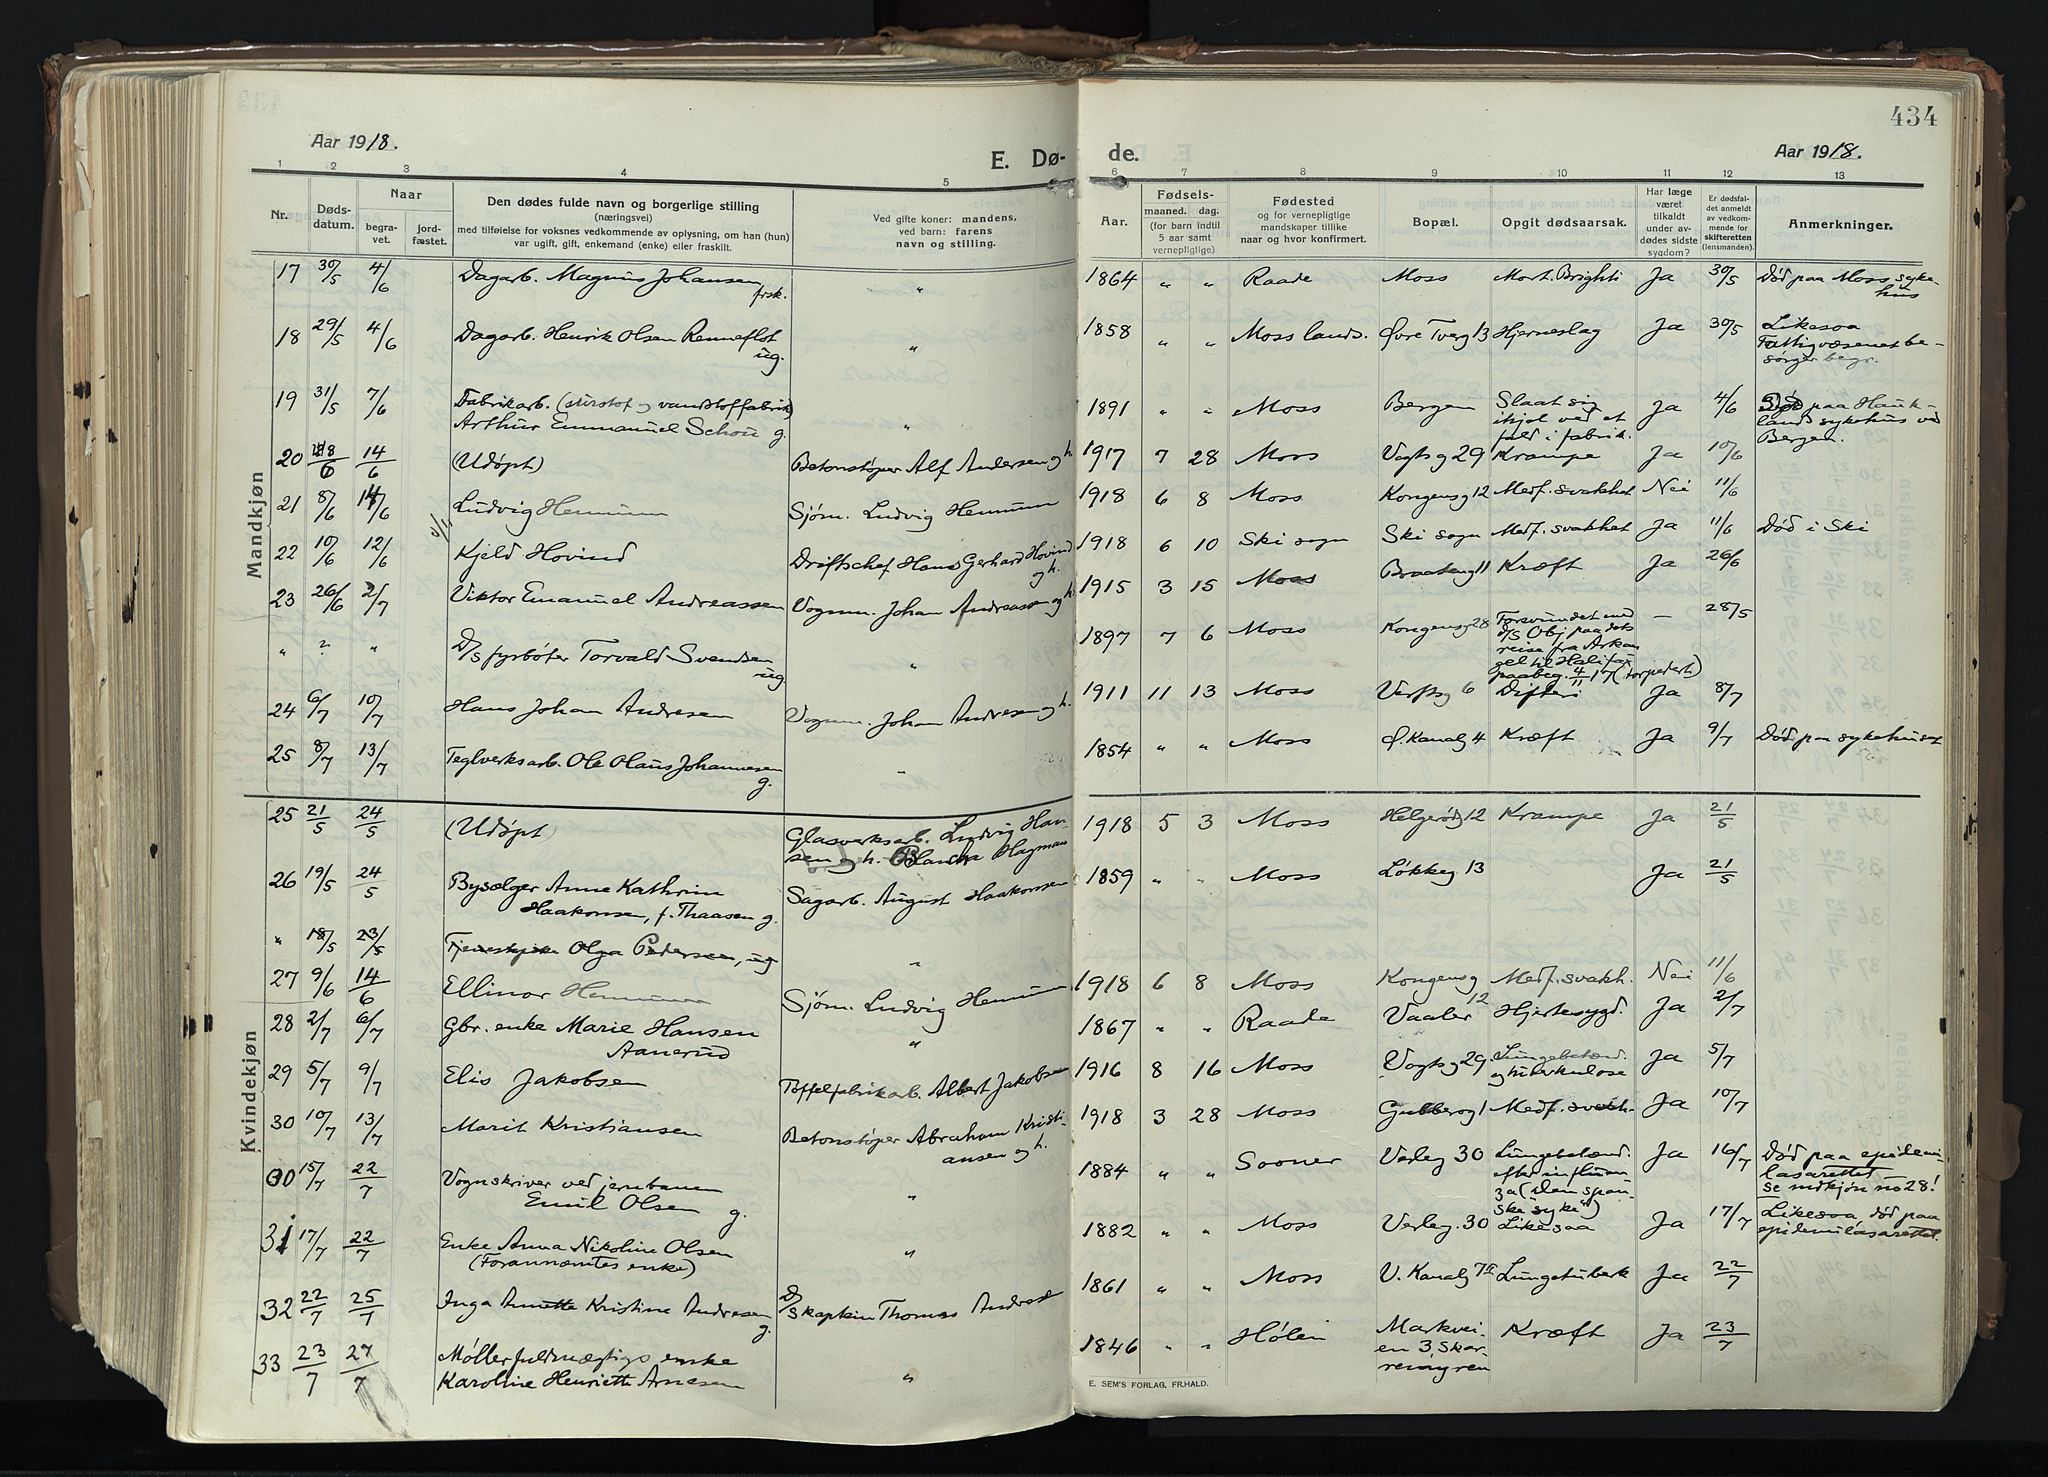 434
Aar 1918.
E. Dø-
de.
Aar 1918.
1 2 3 4 5 6 7 8 9 10 11 12 13
Nr.
Døds-
datum.
Naar
begra-
vet.
jord-
fæstet.
Den dødes fulde navn og borgerlige stilling
(næringsvei)
med tilføielse for voksnes vedkommende av oplysning, om han (hun)
var ugift, gift, enkemand (enke) eller fraskilt.
Ved gifte koner: mandens,
ved barn: farens
navn og stilling.
Aar.
Fødsels-
maaned. dag.
(for barn indtil
5 aar samt
vernepligtige).
Fødested
og for vernepligtige
mandskaper tillike
naar og hvor konfirmert.
Bopæl.
Opgit dødsaarsak.
Har læge
været
tilkaldt
under av-
dødes sidste
sygdom?
Er dødsfal-
det anmeldt
av vedkom-
mende for
skifteretten
(lensmanden).
Anmerkninger.
Mandkjøn
17 30/5 4/6 Dagarb. Magnus Johansen " 1864 " " Raade Moss Mort. Brighti Ja 30/5 Død paa Moss syke-
frsk. hus
18 29/5 4/6 Dagarb. Henrik Olsen Renneflot " 1858 " " Moss lands. Øvre Tverg 13 Hjerneslag Ja 30/5 Likesaa
ug. Fattigvæsenet be-
sørger begr.
19 31/5 7/6 Fabrikarb. (surstof og vandstoffabrik) " 1891 " " Moss Bergen Slaat sig Ja 4/6 Død paa Hauk-
Arthur Emmanuel Schou g. ihjel ved et lands sykehus ved
fald i fabrik. Bergen.
20 8/6 14/6 (Udøpt) Betonstøper Alf Andersen og h. 1917 7 28 Moss Vogtsg 29 Krampe Ja 10/6
21 8/6 14/6 Ludvig Hemnum Sjøm. Ludvig Hemnum 1918 6 8 Moss Kongensg 12 Medf. svakhet Nei 11/6
22 10/6 12/6 Kjeld Hovind Driftschef Hans Gerhard Hovind 1918 6 10 Ski sogn Ski sogn Medf. svakhet Ja 11/6 Død i Ski
og h.
23 26/6 2/7 Viktor Emanuel Andreassen Vognm. Johan Andreassen og h. 1915 3 15 Moss Braateng 11 Kræft Ja 26/6
" ? " D/S fyrbøter Torvald Svendsen " 1897 7 6 Moss Kongensg 28 Forsvundet med — 28/5
ug. D/S Obj paa dets
reise fra Arkan
gel til Halifax
paabeg. 4/11 17 (torpedert)
24 6/7 10/7 Hans Johan Andresen Vognm. Johan Andresen og h. 1911 11 13 Moss Verftsg 6 Difteri Ja 8/7
25 8/7 13/7 Teglverksarb. Ole Olaus Johannesen " 1854 " " Moss Ø. Kanalg 4 Kræft Ja 9/7 Død paa sykehuset
g.
Kvindekjøn
25 21/5 24/5 (Udøpt) Glasverksarb. Ludvig Han- 1918 5 3 Moss Helgerødg 12 Krampe Ja 21/5
sen og h. Blanka Hagman
26 19/5 24/5 Bysælger Anne Kathrine Sagarb. August Haakonsen 1859 " " Moss Løkkeg 13 Ja 21/5
Haakonsen, f. Thaasen g.
" 18/5 23/5 Tjenestepike Olga Pedersen, ug "
27 9/6 14/6 Ellinor Hemnum Sjøm. Ludvig Hemnum 1918 6 8 Moss Kongensg 12 Medf. svakh. Nei 11/6
28 2/7 6/7 Gbr. enke Marie Hansen " 1867 " " Raade Vaaler Hjertesygd. Ja 2/7
Aanerud
29 5/7 9/7 Elis Jakobsen Toffelfabrikarb. Albert Jakobsen 1916 8 16 Moss Vogtsg 29 Lungebetænd. Ja 5/7
og tuberkulose
30 10/7 13/7 Marit Kristiansen Betonstøper Abraham Kristi- 1918 3 28 Moss Gubberog 1 Medf. svakh. Ja 10/7
ansen og h.
30 15/7 22/7 Vognskriver ved jernbanen " 1884 " " Sooner Verleg 30 Lungebetænd. Ja 16/7 Død paa epidemi-
Emil Olsen g. efter influen lasarettet
za (Den span- se mdkjøn no 28!
ske syke)
31 17/7 22/7 Enke Anna Nikoline Olsen " 1882 " " Moss Verleg. 30 Likesaa Ja 17/7 Likesaa død paa
(Forannævntes enke) epidemilasarettet.
32 22/7 25/7 Inga Anette Kristine Andresen D/S kaptein Thomas Andresen 1861 " " Moss V. Kanalg 7 II Lungetuberk Ja 22/7
g.
33 23/7 27/7 Møllerfuldmægtigs enke " 1846 " " Hølen Markvei- Kræft Ja 23/7
Karoline Henriette Arnesen en 3, Skar-
remyren
E. SEM'S FORLAG, FR.HALD.